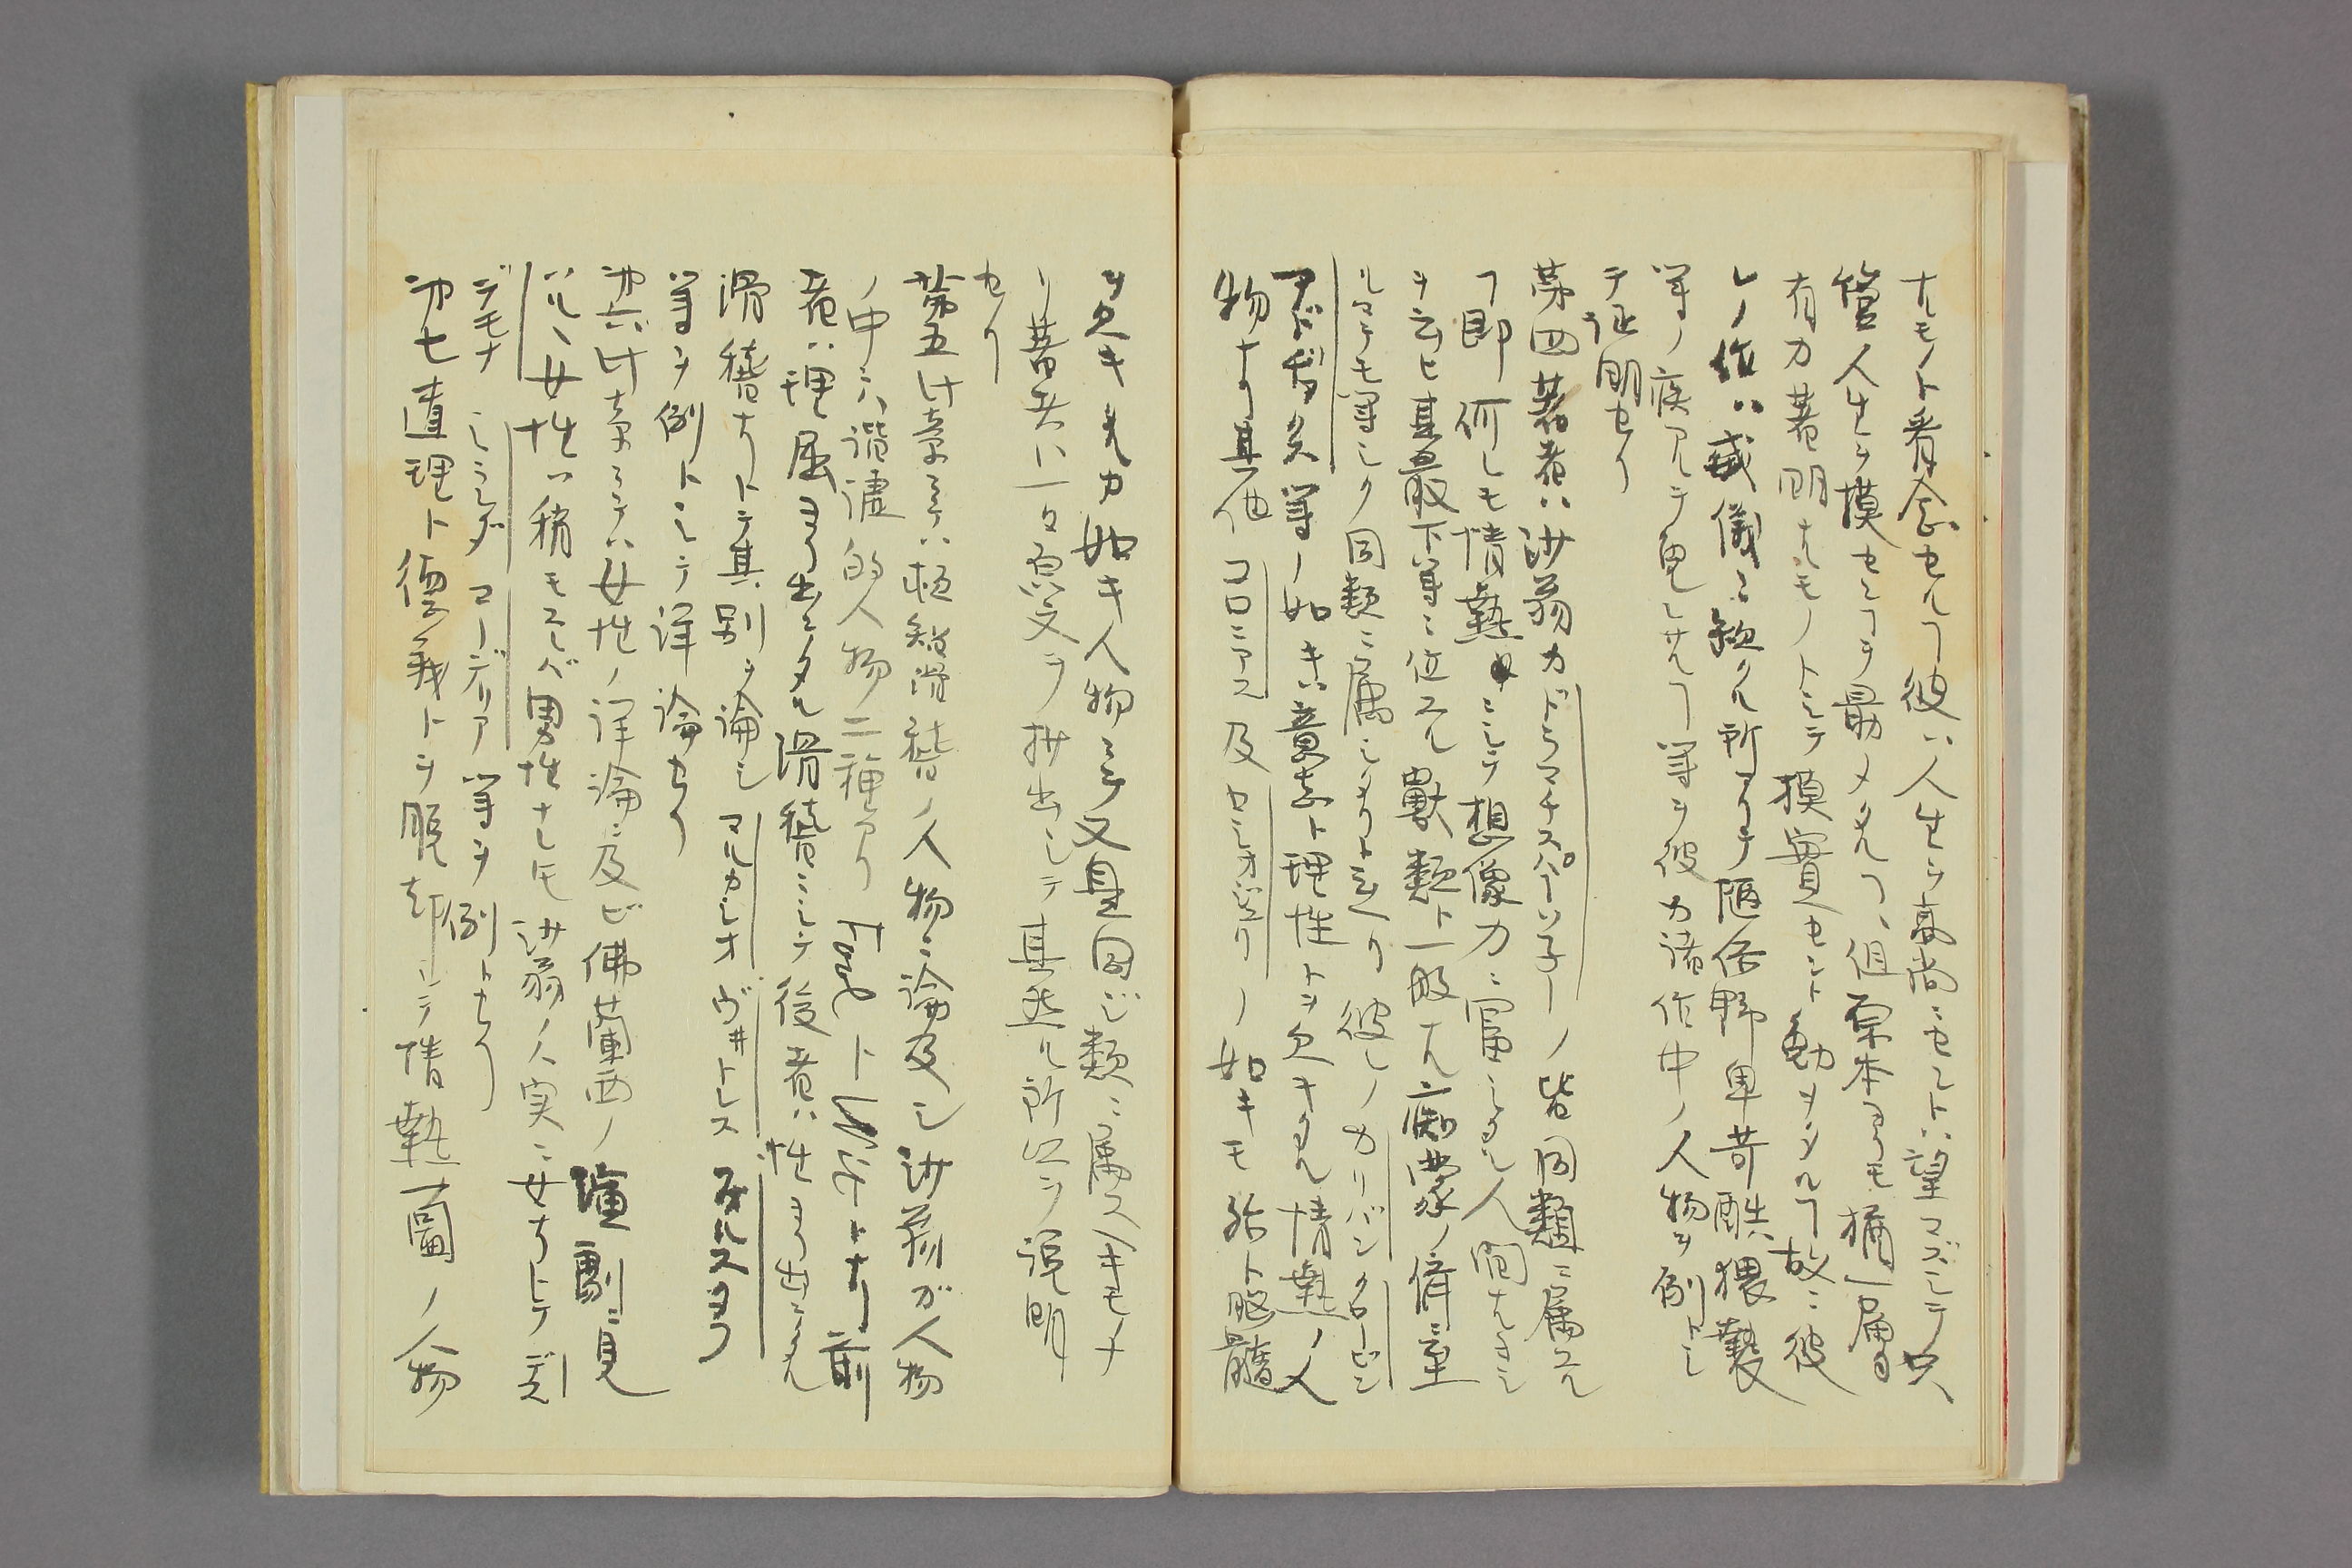 ナルモノト看念セルヿ彼ハ人生ヲ高尚ニセントハ望マズシテ只
管人生ヲ摸センヿヲ最メタルヿ、但原本ヨリモ猶一層
有力著明ナルモノトシテ摸写セント勤ヲタルヿ故ニ彼
レノ作ハ威儀ニ欠クル所アリテ陋俗野卑苛酷猥褻
等ノ疾アルヲ免レサルヿ等ヲ彼カ諸作中ノ人物ヲ例トシ
テ証明セリ
第四著者ハ沙翁カドラマチスパーソ子ーノ皆同類ニ属スル
ヿ即何レモ情熱ニシテ想像力ニ富ミタル人間ナルヨシ
ヲ云ヒ其最下等ニ位スル獣類ト一般ナル痴蒙ノ儕ニ至
ルマテモ等シク同類ニ属シタリト云ヘリ彼レノカリバンクローテン
等ノ如キハ意志ト理性トヲ欠キタル情熱ノ人
物ナリ其他コロニアス及カシオノ如キモ殆ト脳髄
ヲ欠キタルカ如キ人物ニテ又具同ジ類ニ属スヘキモノナ
リ著者ハ一々原文ヲ抄出シテ其然ル所以ヲ説明
セリ
第五此章ニテハ頓智滑稽ノ人物ニ論及シ沙翁ガ人物
ノ中ニ諧謔的人物二種アリ ト ト ナリ前
者ハ理屈ヨリ出テタル滑稽ニシテ後者ハ性ヨリ出テタル
滑稽ナリトテ其別ヲ論シマルカシオヴ井トレスフォルスタフ
等ヲ例トシテ詳論セリ
第六此章ニテハ女性ノ詳論ニ及ビ佛蘭西ノ演劇ニ見
ハルヽ女性ハ稍モスレバ男性ナレモ沙翁ノハ実ニ女ナリトテデス
デモナ ミランダ コーデリア等ヲ例トセリ
第七道理ト徳義トヲ脱却シテ情熱一圖ノ人物